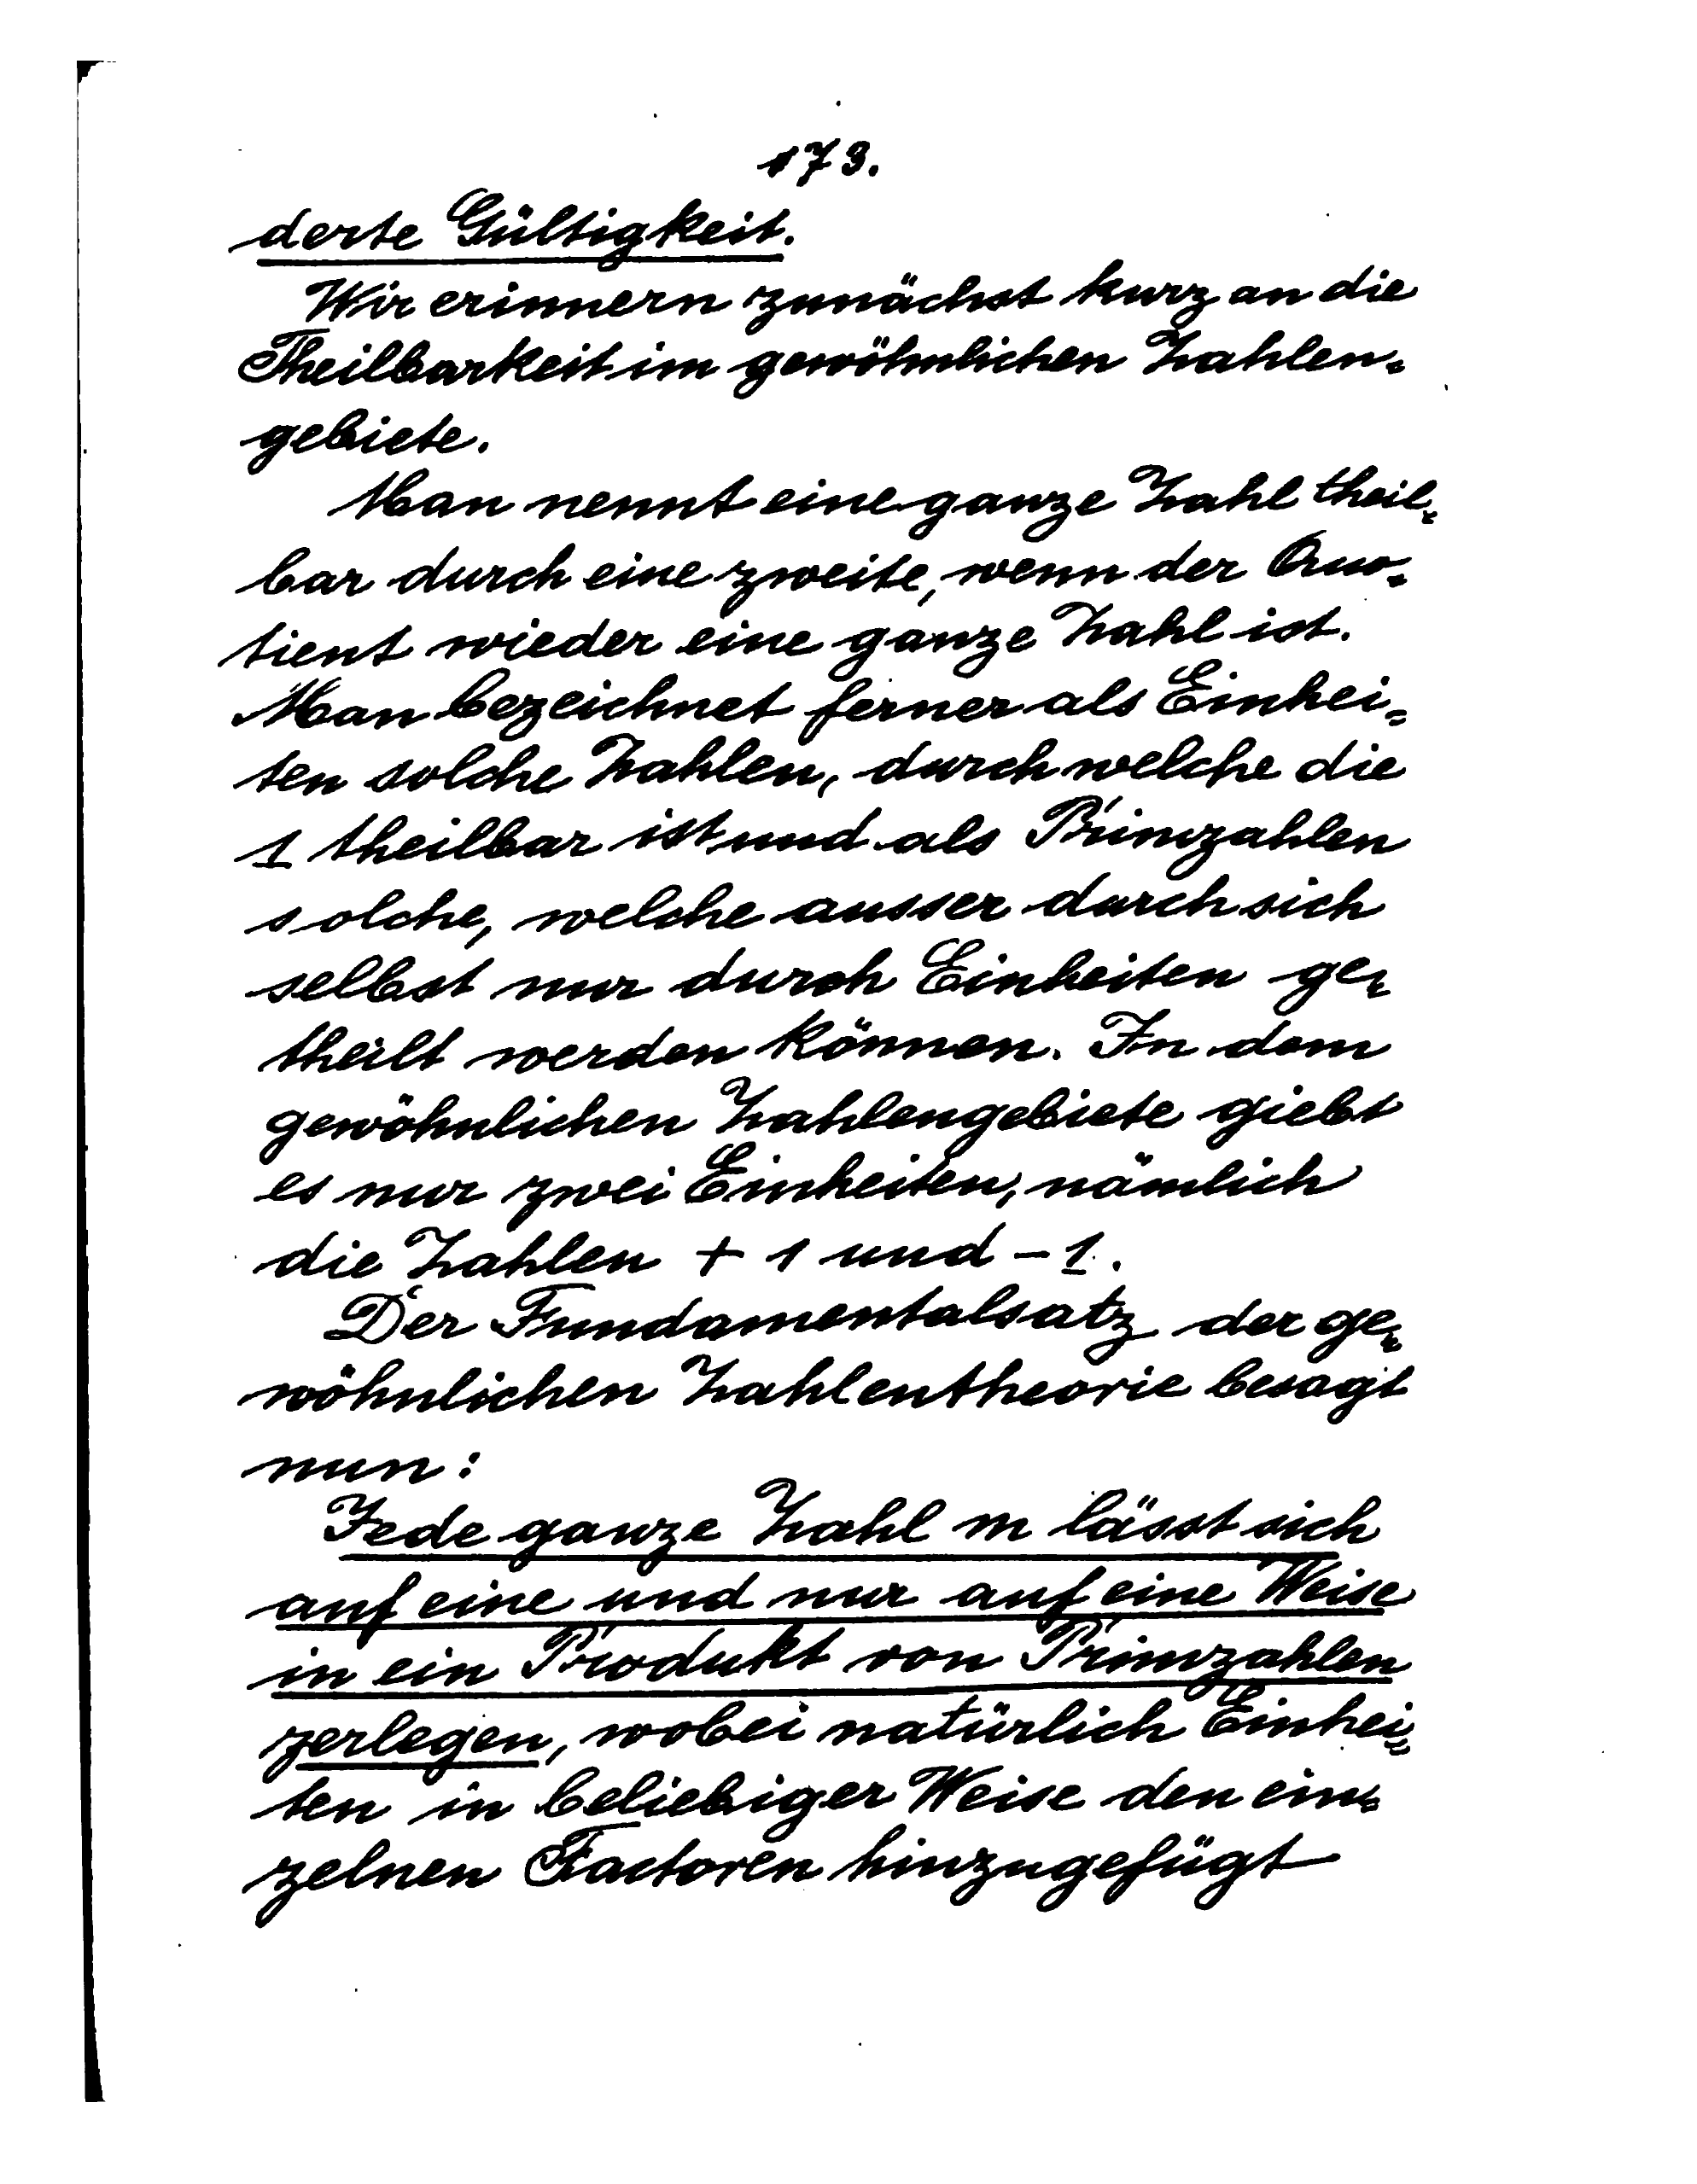 173.
derte Gültigkeit.
Wir erinnern zunächst kurz an die
Theilbarkeit im gewöhnlichen Zahlen=
gebiete.
Man nennt eine ganze Zahl theil=
bar durch eine zweite, wenn der Quo=
tient wieder eine ganze Zahl ist.
Man bezeichnet ferner als Einhei=
ten solche Zahlen, durch welche die
1 theilbar ist und als Primzahlen
solche, welche ausser durch sich
selbst nur durch Einheiten ge=
theilt werden können. In dem
gewöhnlichen Zahlengebiete giebt
es nur zwei Einheiten, nämlich
die Zahlen + 1 und - 1.
Der Fundamentalsatz der ge=
wöhnlichen Zahlentheorie besagt
nun:
Jede ganze Zahl m lässt sich
auf eine und nur auf eine Weise
in ein Produkt von Primzahlen
zerlegen, wobei natürlich Einhei=
ten in beliebiger Weise den ein=
zelnen Factoren hinzugefügt